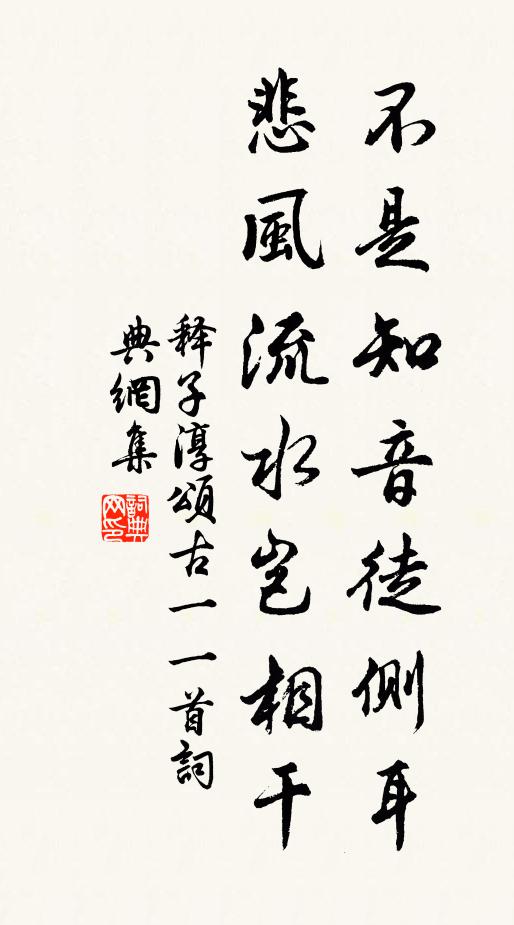 不是知音徒側耳
悲風流水豈相干
释子淳頌古一一首詞
典網集
詞典
网印